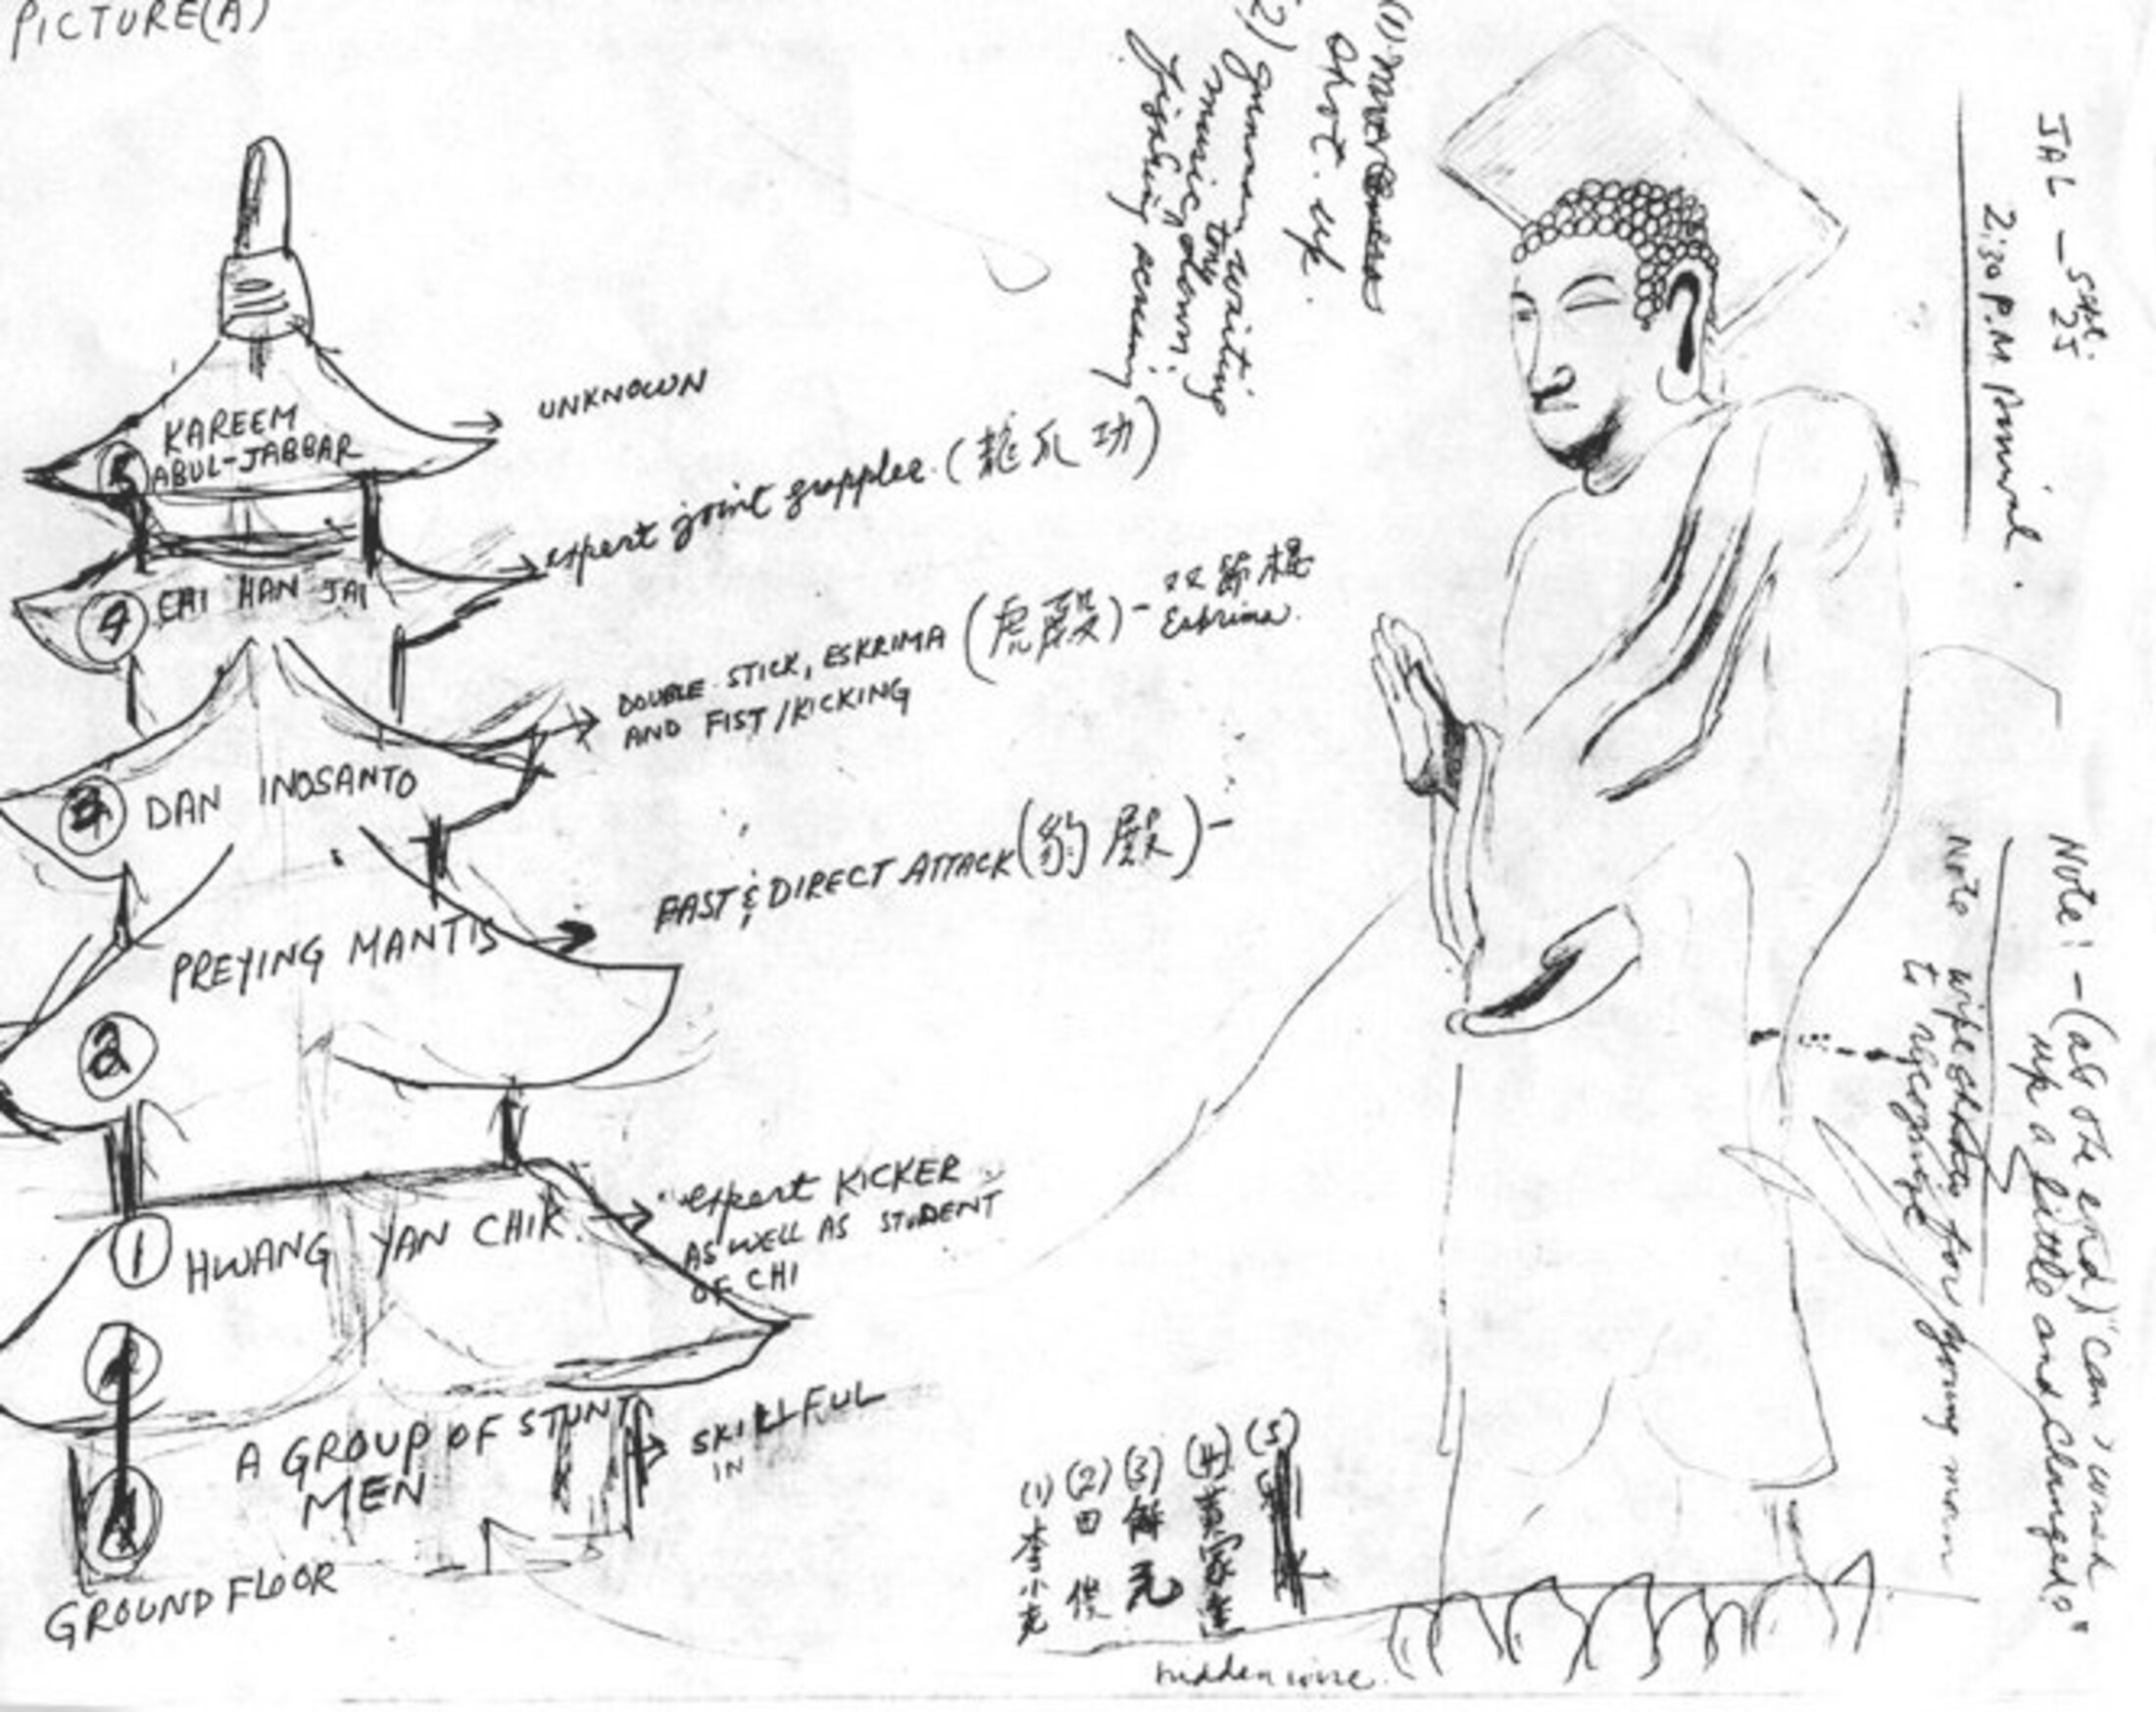 PICTURE(A)
KAREEM
ABUL-JABBAR
→ UNKNOWN
4 CHI HAN JAI
→ expert joint grappler. (龍爪功)
DAN INOSANTO
→ DOUBLE STICK, ESKRIMA (虎殿) - 双節棍
Eskrima.
AND FIST/KICKING
2 PREYING MANTIS
→ FAST & DIRECT ATTACK (豹殿) -
1 HWANG YAN CHIK
→ expert KICKER
AS WELL AS STUDENT
OF CHI
A GROUP OF STUNT
MEN
→ SKILLFUL
IN
GROUND FLOOR
(1)
shot. up.
(2) gunman waiting
music tony down:
fishing
JAL - Sept. 25
2:30 P.M. Arrival.
Note! - (at the end) "can, wash
up a little and changed."
Note wipe for young man
to recognize
(1) 李小龙
(2) 田俊
(3) 解元
(4) 黄家
(5)
hidden wire.